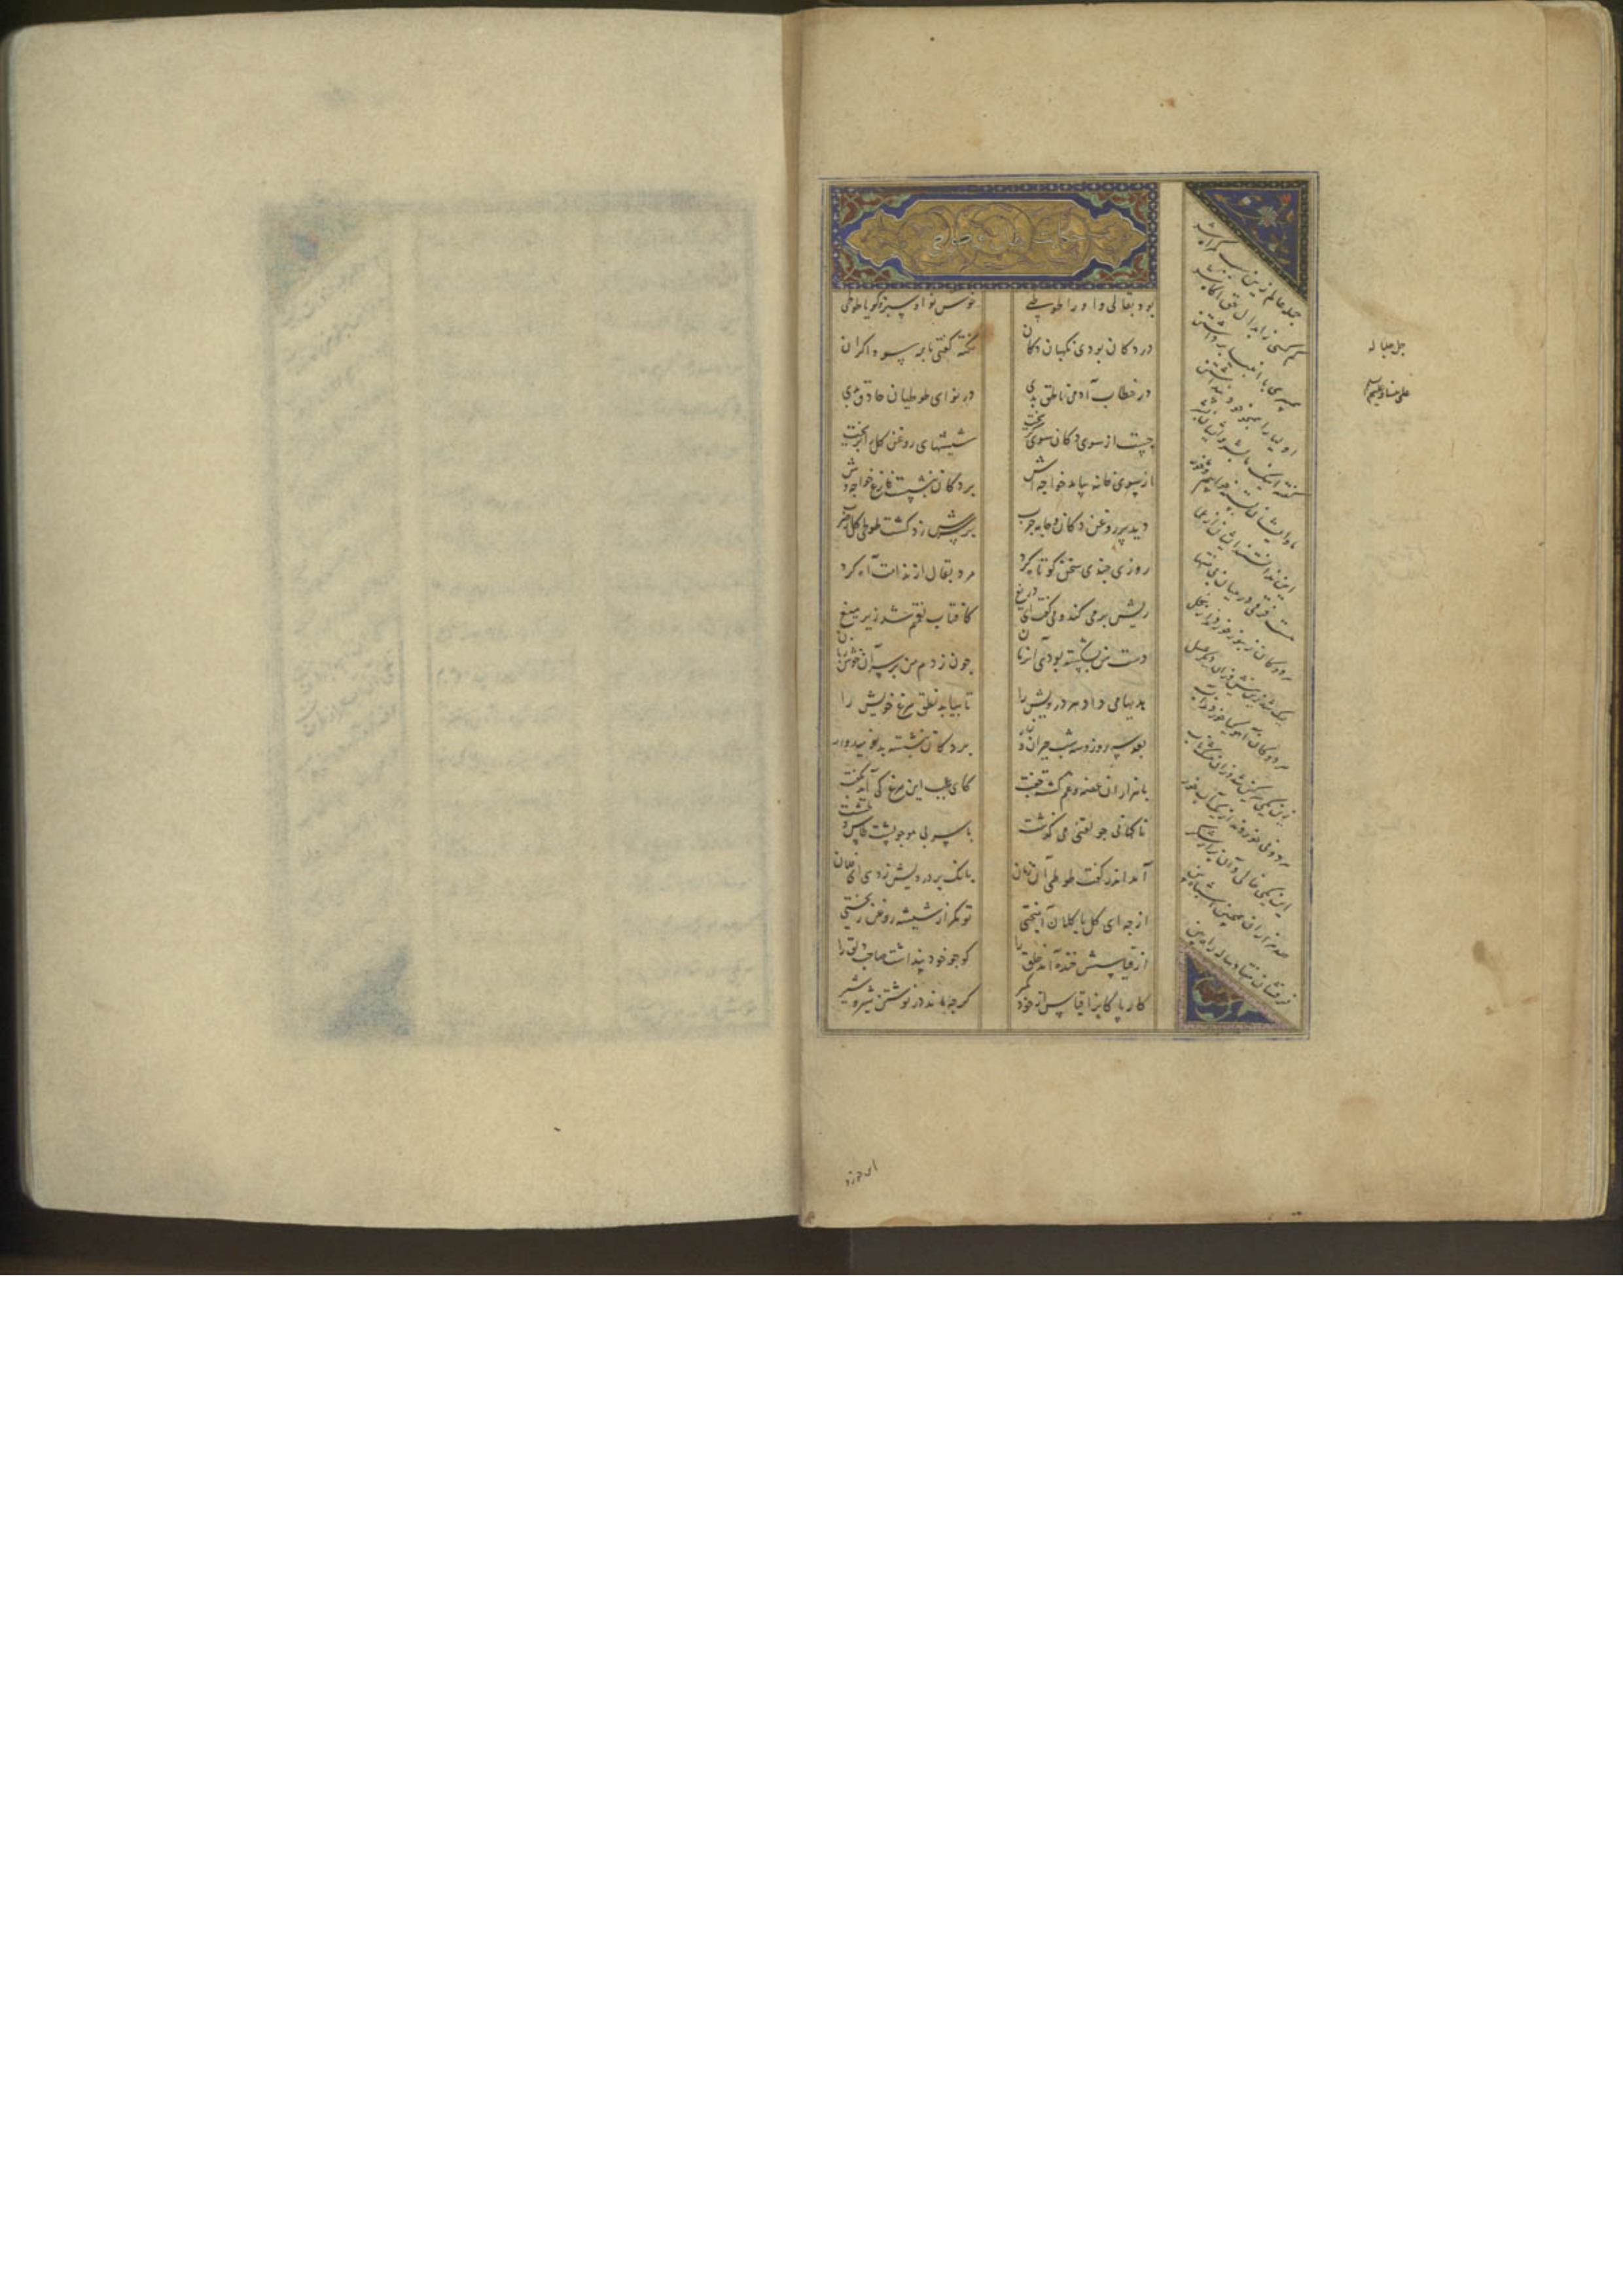 بود بقالی و او را طوطیی خوش نوا و سبز و گویا طوطی
در دکان بودی نگهبان دکان نکته گفتی با همه سوداگران
در خطاب آدمی ناطق بدی در نوای طوطیان حاذق بدی
جست از سوی دکان سوی گریخت شیشهای روغن گل را بریخت
از سوی خانه بیامد خواجه‌اش بر دکان بنشست فارغ خواجه‌وش
دید پر روغن دکان و جامه چرب بر سرش زد گشت طوطی کل ز ضرب
روزی چندی سخن کوتاه کرد مرد بقال از ندامت آه کرد
ریش بر می کند و می گفت ای دریغ کافتاب نعمتم شد زیر میغ
دست من بشکسته بودی آن زمان چون زدم من بر سر آن خوش زبان
هدیها می داد هر درویش را تا بیابد نطق مرغ خویش را
بعد سه روز و سه شب حیران و زار بر دکان بنشسته بد نومیدوار
با هزاران غصه و غم گشته جفت کای عجب این مرغ کی آید بگفت
ناگهانی جولقیی می گذشت با سر بی مو چو پشت طاس و طشت
آمد اندر گفت طوطی آن زمان بانگ بر درویش زد که ای فلان
از چه ای کل با کلان آمیختی تو مگر از شیشه روغن ریختی
از قیاسش خنده آمد خلق را کو چو خود پنداشت صاحب دلق را
کار پاکان را قیاس از خود مگیر گرچه ماند در نوشتن شیر و شیر
جمله عالم زین سبب گمراه شد
کم کسی ز ابدال حق آگاه شد
همسری با انبیا برداشتند
اولیا را همچو خود پنداشتند
گفته اینک ما بشر ایشان بشر
ما و ایشان بسته خوابیم و خور
این ندانستند ایشان از عمی
هست فرقی در میان بی منتها
هر دو گان زنبور خوردند از محل
لیک شد زین نیش و زان دیگر عسل
هر دو گان آهو گیا خوردند و آب
زین یکی سرگین شد و زان مشک ناب
هر دو نی خوردند از یک آب خور
این یکی خالی و آن پر از شکر
صد هزاران همچنین اشباه بین
فرقشان هفتاد ساله راه بین
این خورد